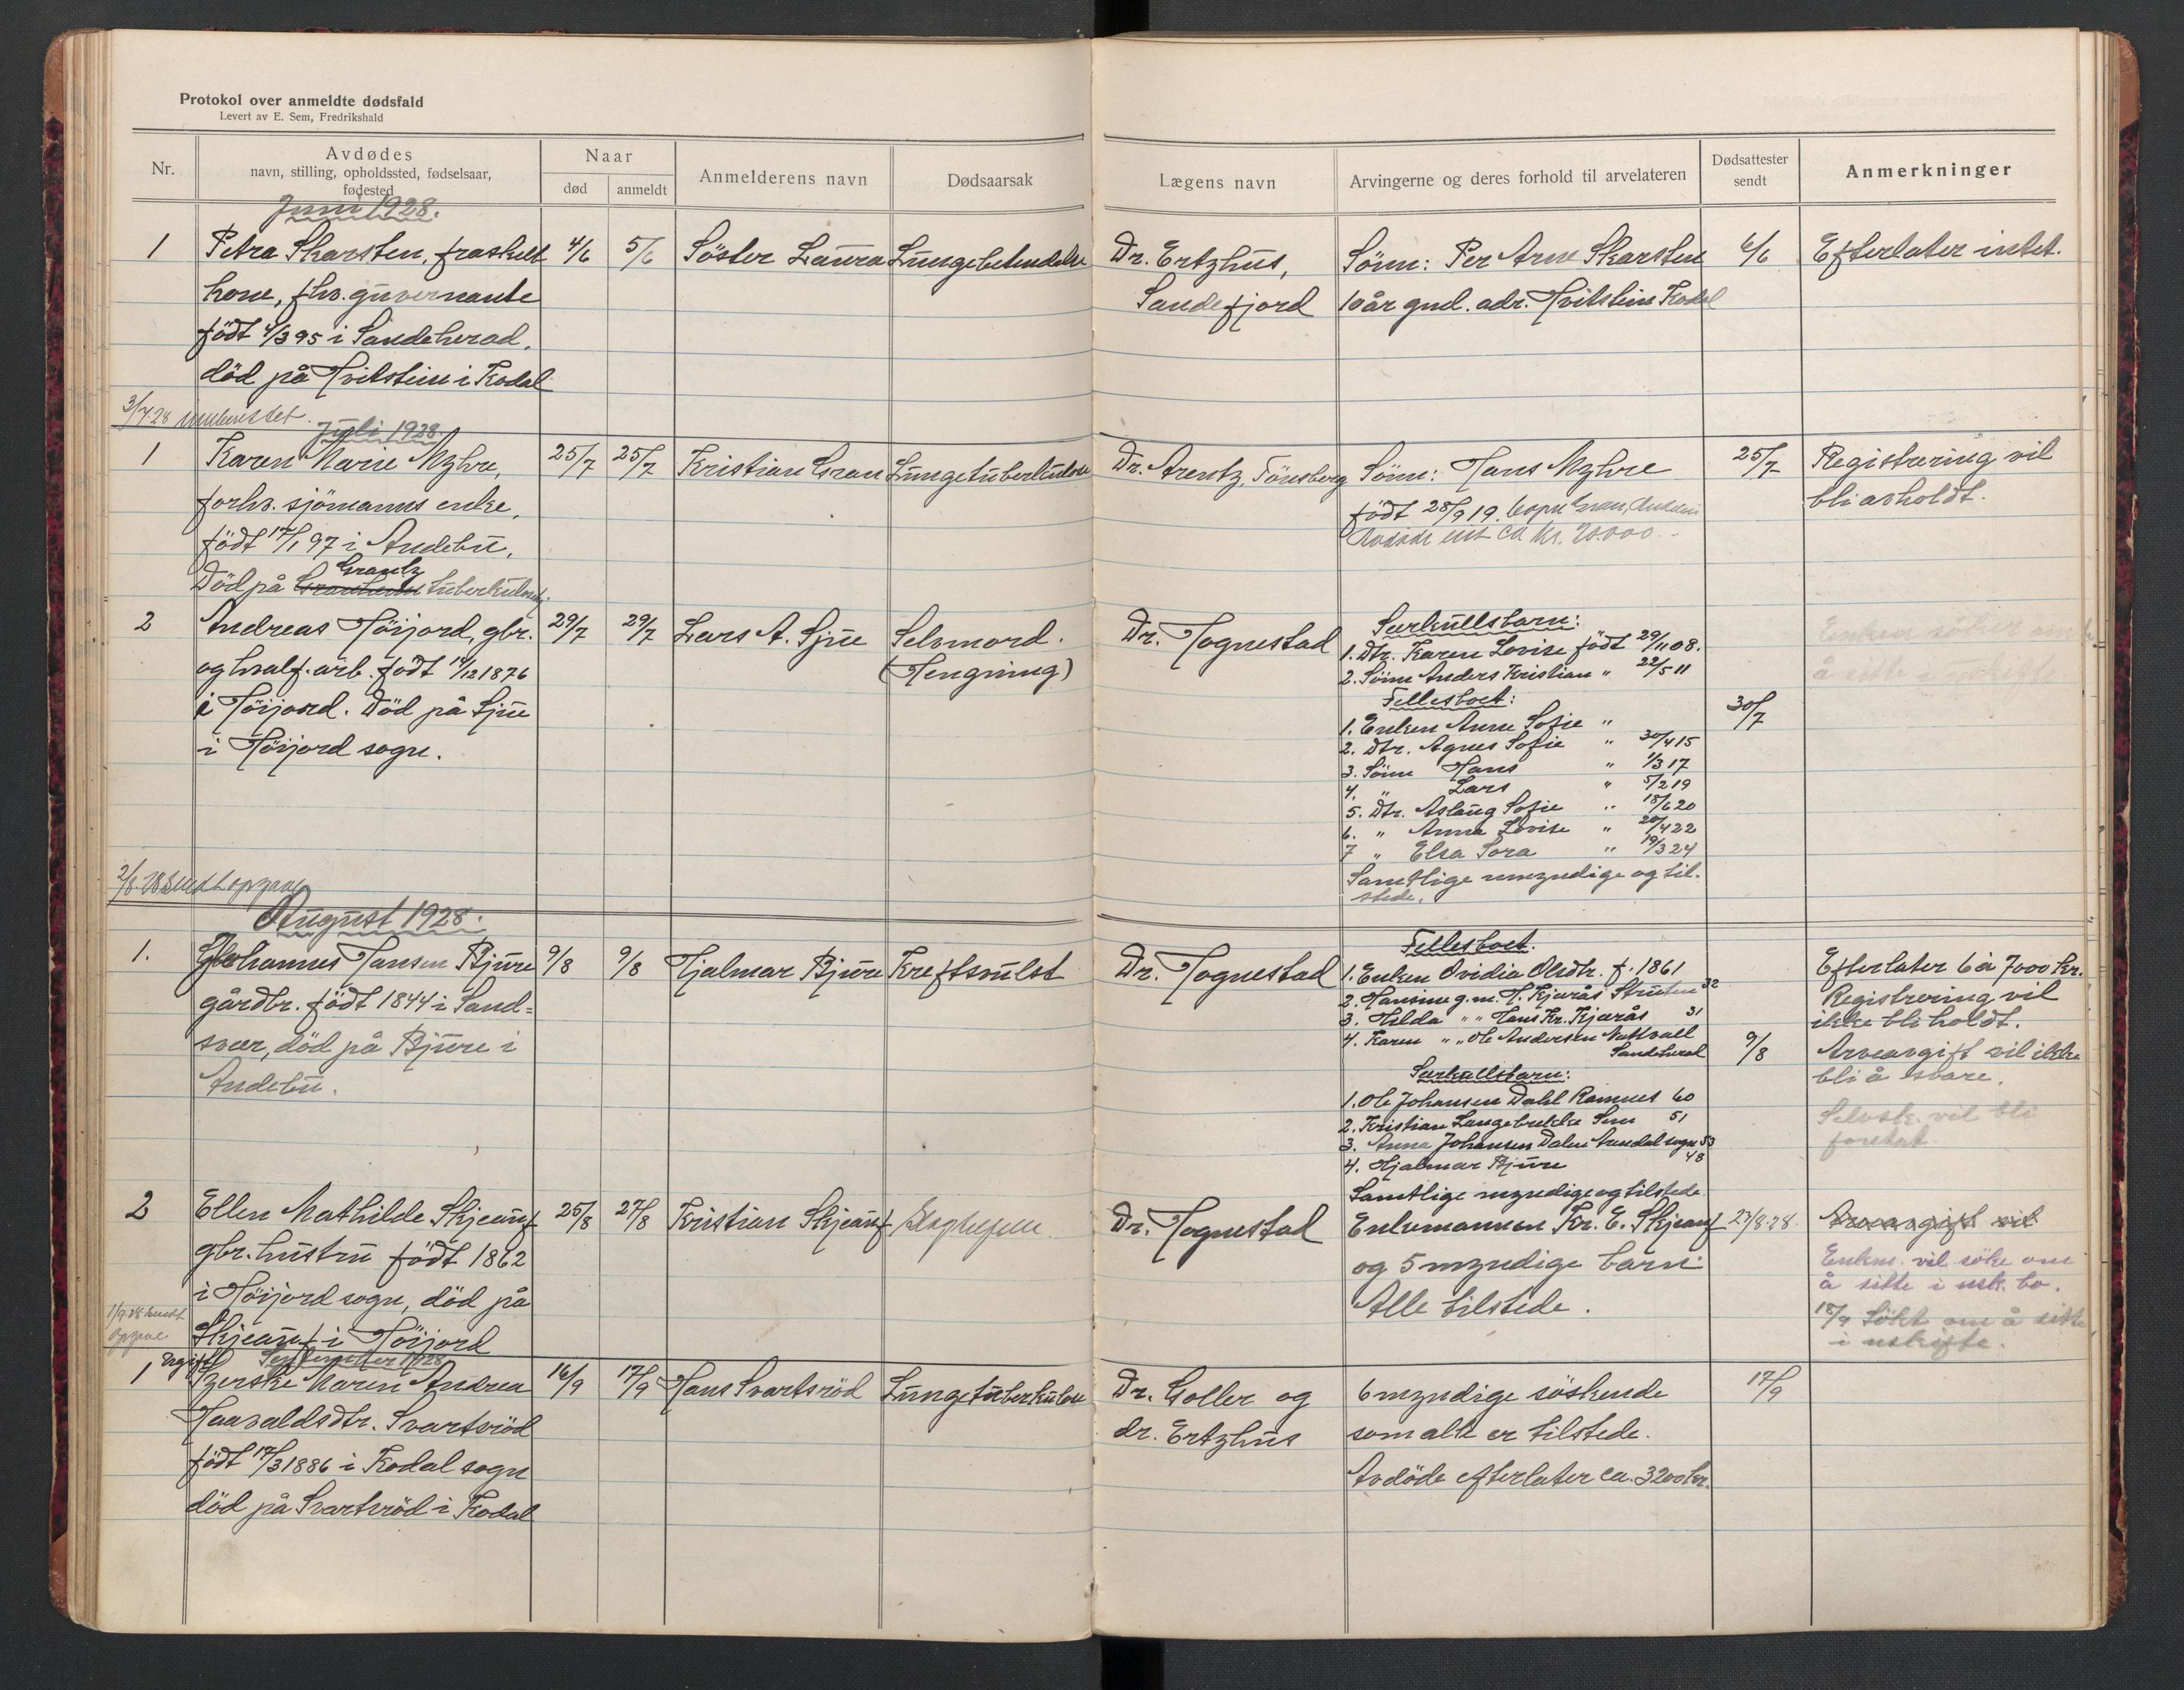 Protokol over anmeldte dødsfald
Levert av E. Sem, Fredrikshald
Nr.
Avdødes
navn, stilling, opholdssted, fødselsaar,
fødested
Naar
død
anmeldt
Anmelderens navn
Dødsaarsak
Lægens navn
Arvingerne og deres forhold til arvelateren
Dødsattester
sendt
Anmerkninger
Juni 1928.
1
Petra Skarsten, fraskilt
kone, fhv. guvernante
født 4/3 95 i Sandeherad.
död på Hvitstein i Kodal
4/6
5/6
Söster Laura
Lungebetendelse
Dr. Ertzhus,
Sandefjord
Sönn: Per Arne Skarsten
10 år gml. adr. Hvitstein Kodal
6/6
Efterlater intet.
3/7 28 innberettet.
Juli 1928.
1
Karen Marie Myhre,
forhv. sjömanns enke,
födt 17/1 97 i Andebu,
Död på Grantz tuberkulosehj.
25/7
25/7
Kristian Gran
Lungetuberkulose
Dr. Arentz, Tönsberg
Sönn: Hans Myhre
født 28/9 19.
Avdøde eiet ca kr. 20.000.
25/7
Registrering vil
bli avholdt.
2
Andreas Höijord, gbr.
og hvalf. arb. født 14/12 1876
i Höijord. Död på Sjue
i Höijord sogn.
29/7
29/7
Lars A. Sjue
Selvmord.
(Hengning)
Dr. Tognestad
Særkullsbarn:
1. Dtr. Karen Lovise födt 29/11 08.
2. Sönn Anders Kristian " 22/5 11
Fellesboet:
1. Enken Anne Sofie "
2. Dtr. Agnes Sofie " 30/4 15
3. Sönn Hans " 1/3 17
4. " Lars " 5/2 19
5. Dtr. Aslaug Sofie " 18/6 20
6. " Anna Lovise " 20/4 22
7 " Elsa Tora " 19/3 24
Samtlige umyndige og til-
stede.
30/7
Enken söker om
å sitte i uskifte
2/8. 28 sendt opgave
August 1928.
1.
Johannes Hansen Bjure
gårdbr. födt 1844 i Sand-
svær, död på Bjure i
Andebu.
9/8
9/8
Hjalmar Bjure
Kreftsvulst
Dr. Tognestad
Fellesboet.
1. Enken Ovidia Olsdtr. f. 1861
2. Hansine g.m. H. Kjærås Struten 32
3. Hilda " " Hans Kr. Kjærås 31
4. Karen " " Ole Andersen
Sandeherad
Særkullsbarn:
1. Ole Johansen Dahl Ramnes 60
2. Kristian Langebrekke Sem 51
3. Anna Johansen Dalen Arendal sogn 53
4. Hjalmar Bjure 48
Samtlige myndige og tilstede
9/8
Efterlater 6 à 7000 kr.
Registrering vil
ikke bli holdt.
Arveavgift vil ikke
bli å svare.
Selvsk. vil bli
foretat.
2
Ellen Mathilde Skjeauf
gbr. hustru födt 1862
i Höijord sogn, död på
Skjeauf i Höijord
25/8
27/8
Kristian Skjeauf
Dr. Tognestad
Enkemannen Kr. E. Skjeauf
og 5 myndige barn.
Alle tilstede.
27/8-28.
Arveavgift vil
Enkem. vil söke om
å sitte i usk. bo.
18/9 Sökt om å sitte
i uskifte.
1/9 28 sendt
opgave
September 1928
1
Ugift
Syerske Maren Andrea
Haavaldsdtr. Svartsröd
födt 17/3 1886 i Kodal sogn
död på Svartsröd i Kodal
16/9
17/9
Hans Svartsröd
Lungetuberkulose
Dr. Goller og
dr. Ertzhus
6 myndige söskende
som alle er tilstede.
Avdöde efterlater ca. 3200 kr.
17/9